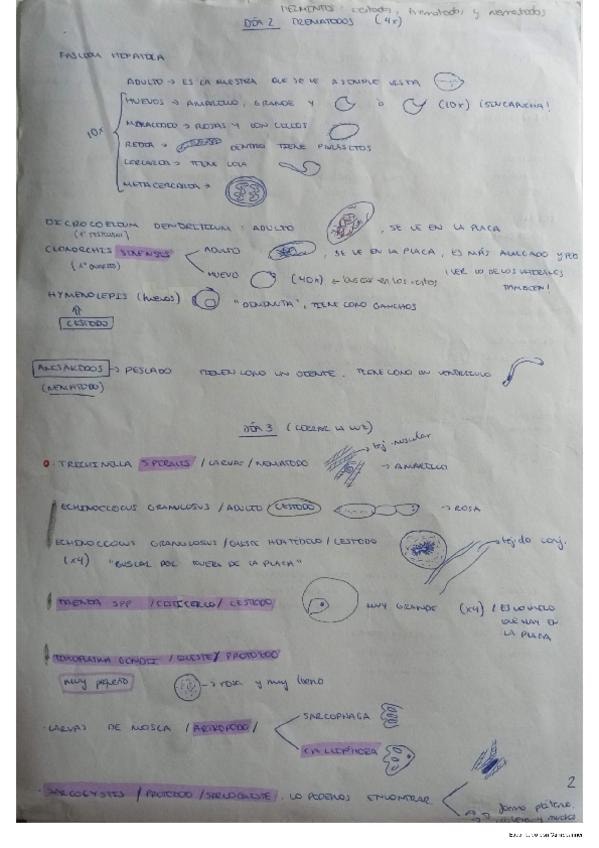 HELMINTOS: cestodos, trematodos y nematodos
DÍA 2 TREMATODOS (4x)
FASCIOLA HEPATICA
ADULTO → ES LA MUESTRA QUE SE VE A SIMPLE VISTA
HUEVOS → AMARILLO, GRANDE Y Ó (10x) (SIN GANCHA!
10x
MIRACIDIO → ROJAS Y CON CILIOS
REDIA → DENTRO TIENE PUNTITOS
CERCARIA → TIENE COLA
METACERCARIA →
DICROCOELIUM DENDRITICUM: ADULTO , SE VE EN LA PLACA
CLONORCHIS SINENSIS ADULTO , SE VE EN LA PLACA, ES MÁS ALARGADO Y
HUEVO (40x) → buscar en los restos ¡VER LO DE LOS LATERALES TAMBIÉN!
HYMENOLEPIS (huevos) "DIMINUTA", TIENE COMO GANCHOS
CESTODO
ANISAKIDOS → PESCADO TIENEN COMO UN DIENTE. TIENE COMO UN VENTRÍCULO
(NEMATODO)
DÍA 3 (CERRAR LA LUZ)
· TRICHINELLA SPIRALIS / LARVAS / NEMATODO → tej. muscular → AMARILLO
ECHINOCOCCUS GRANULOSUS / ADULTO / CESTODO → ROSA
ECHINOCOCCUS GRANULOSUS / QUISTE HIDATÍDICO / CESTODO → tejido conj.
(x4) "BUSCAR POR FUERA DE LA PLACA"
TAENIA SPP / CISTICERCO / CESTODO MUY GRANDE (x4) / ES LO ÚNICO
QUE HAY EN
LA PLACA
TOXOPLASMA GONDII / QUISTE / PROTOZOO
muy pequeño → rosa y muy lleno
· LARVAS DE MOSCA / ARTROPODO / SARCOPHAGA
CALLIPHORA
· SARCOCYSTIS / PROTOZOO / SARCOQUISTE. LO PODEMOS ENCONTRAR
2